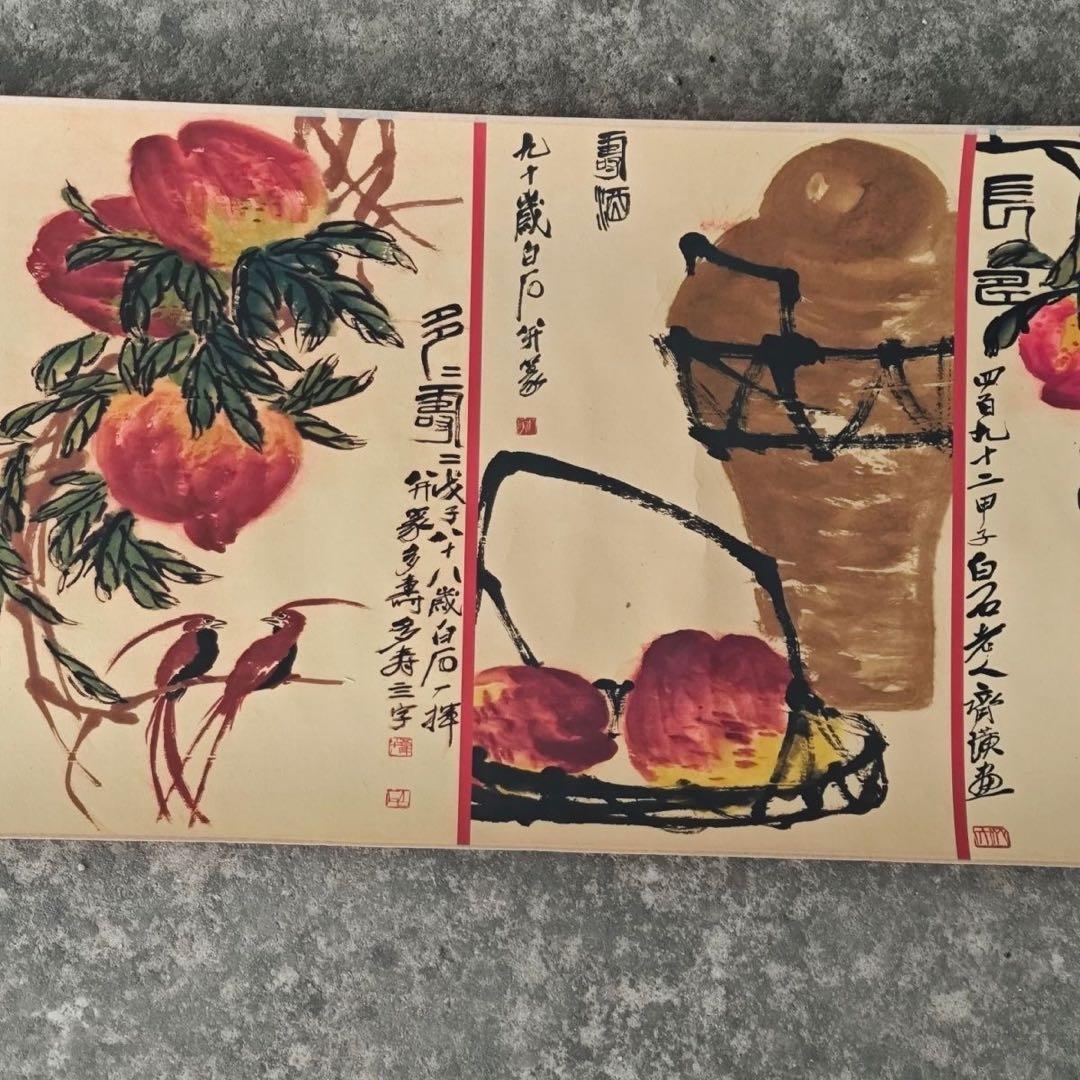 長
四百九十二甲子白石老人齊璜畫
壽酒
九十歲白石并篆
多二壽二
戊子八十八歲白石一揮
并篆多壽多壽三字